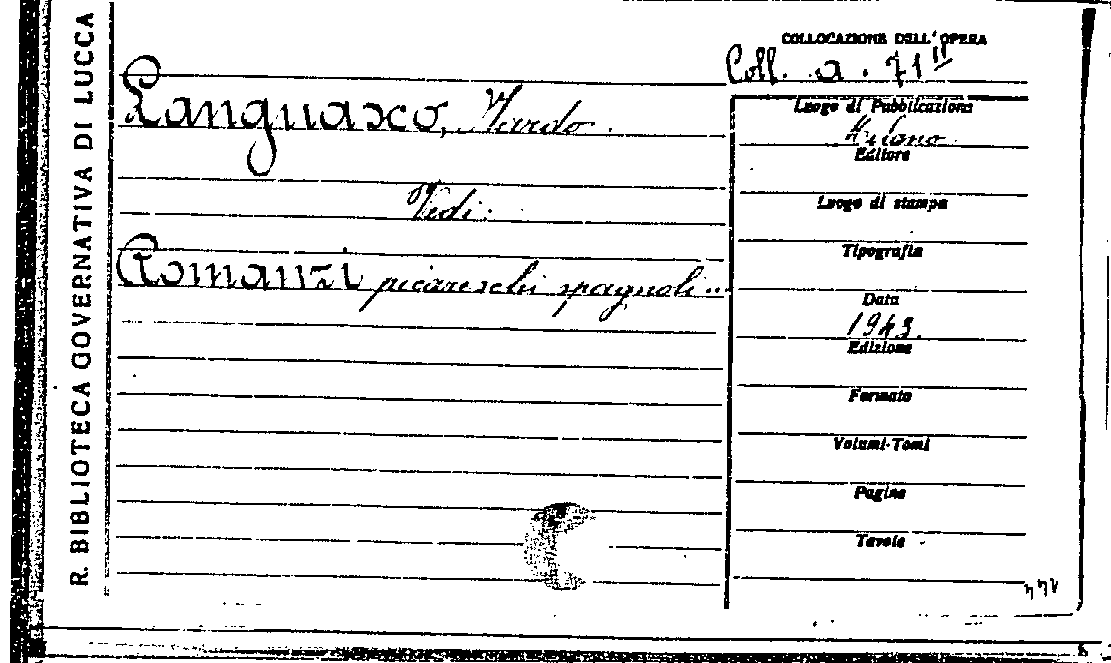 R. BIBLIOTECA GOVERNATIVA DI LUCCA
COLLOCAZIONE DELL'OPERA
Coll. a. 71 II
Languasco, Nardo.
Vedi:
Romanzi picareschi spagnoli...
Luogo di Pubblicazione
Milano
Editore
Luogo di stampa
Tipografia
Data
1943.
Edizione
Formato
Volumi-Tomi
Pagine
Tavole